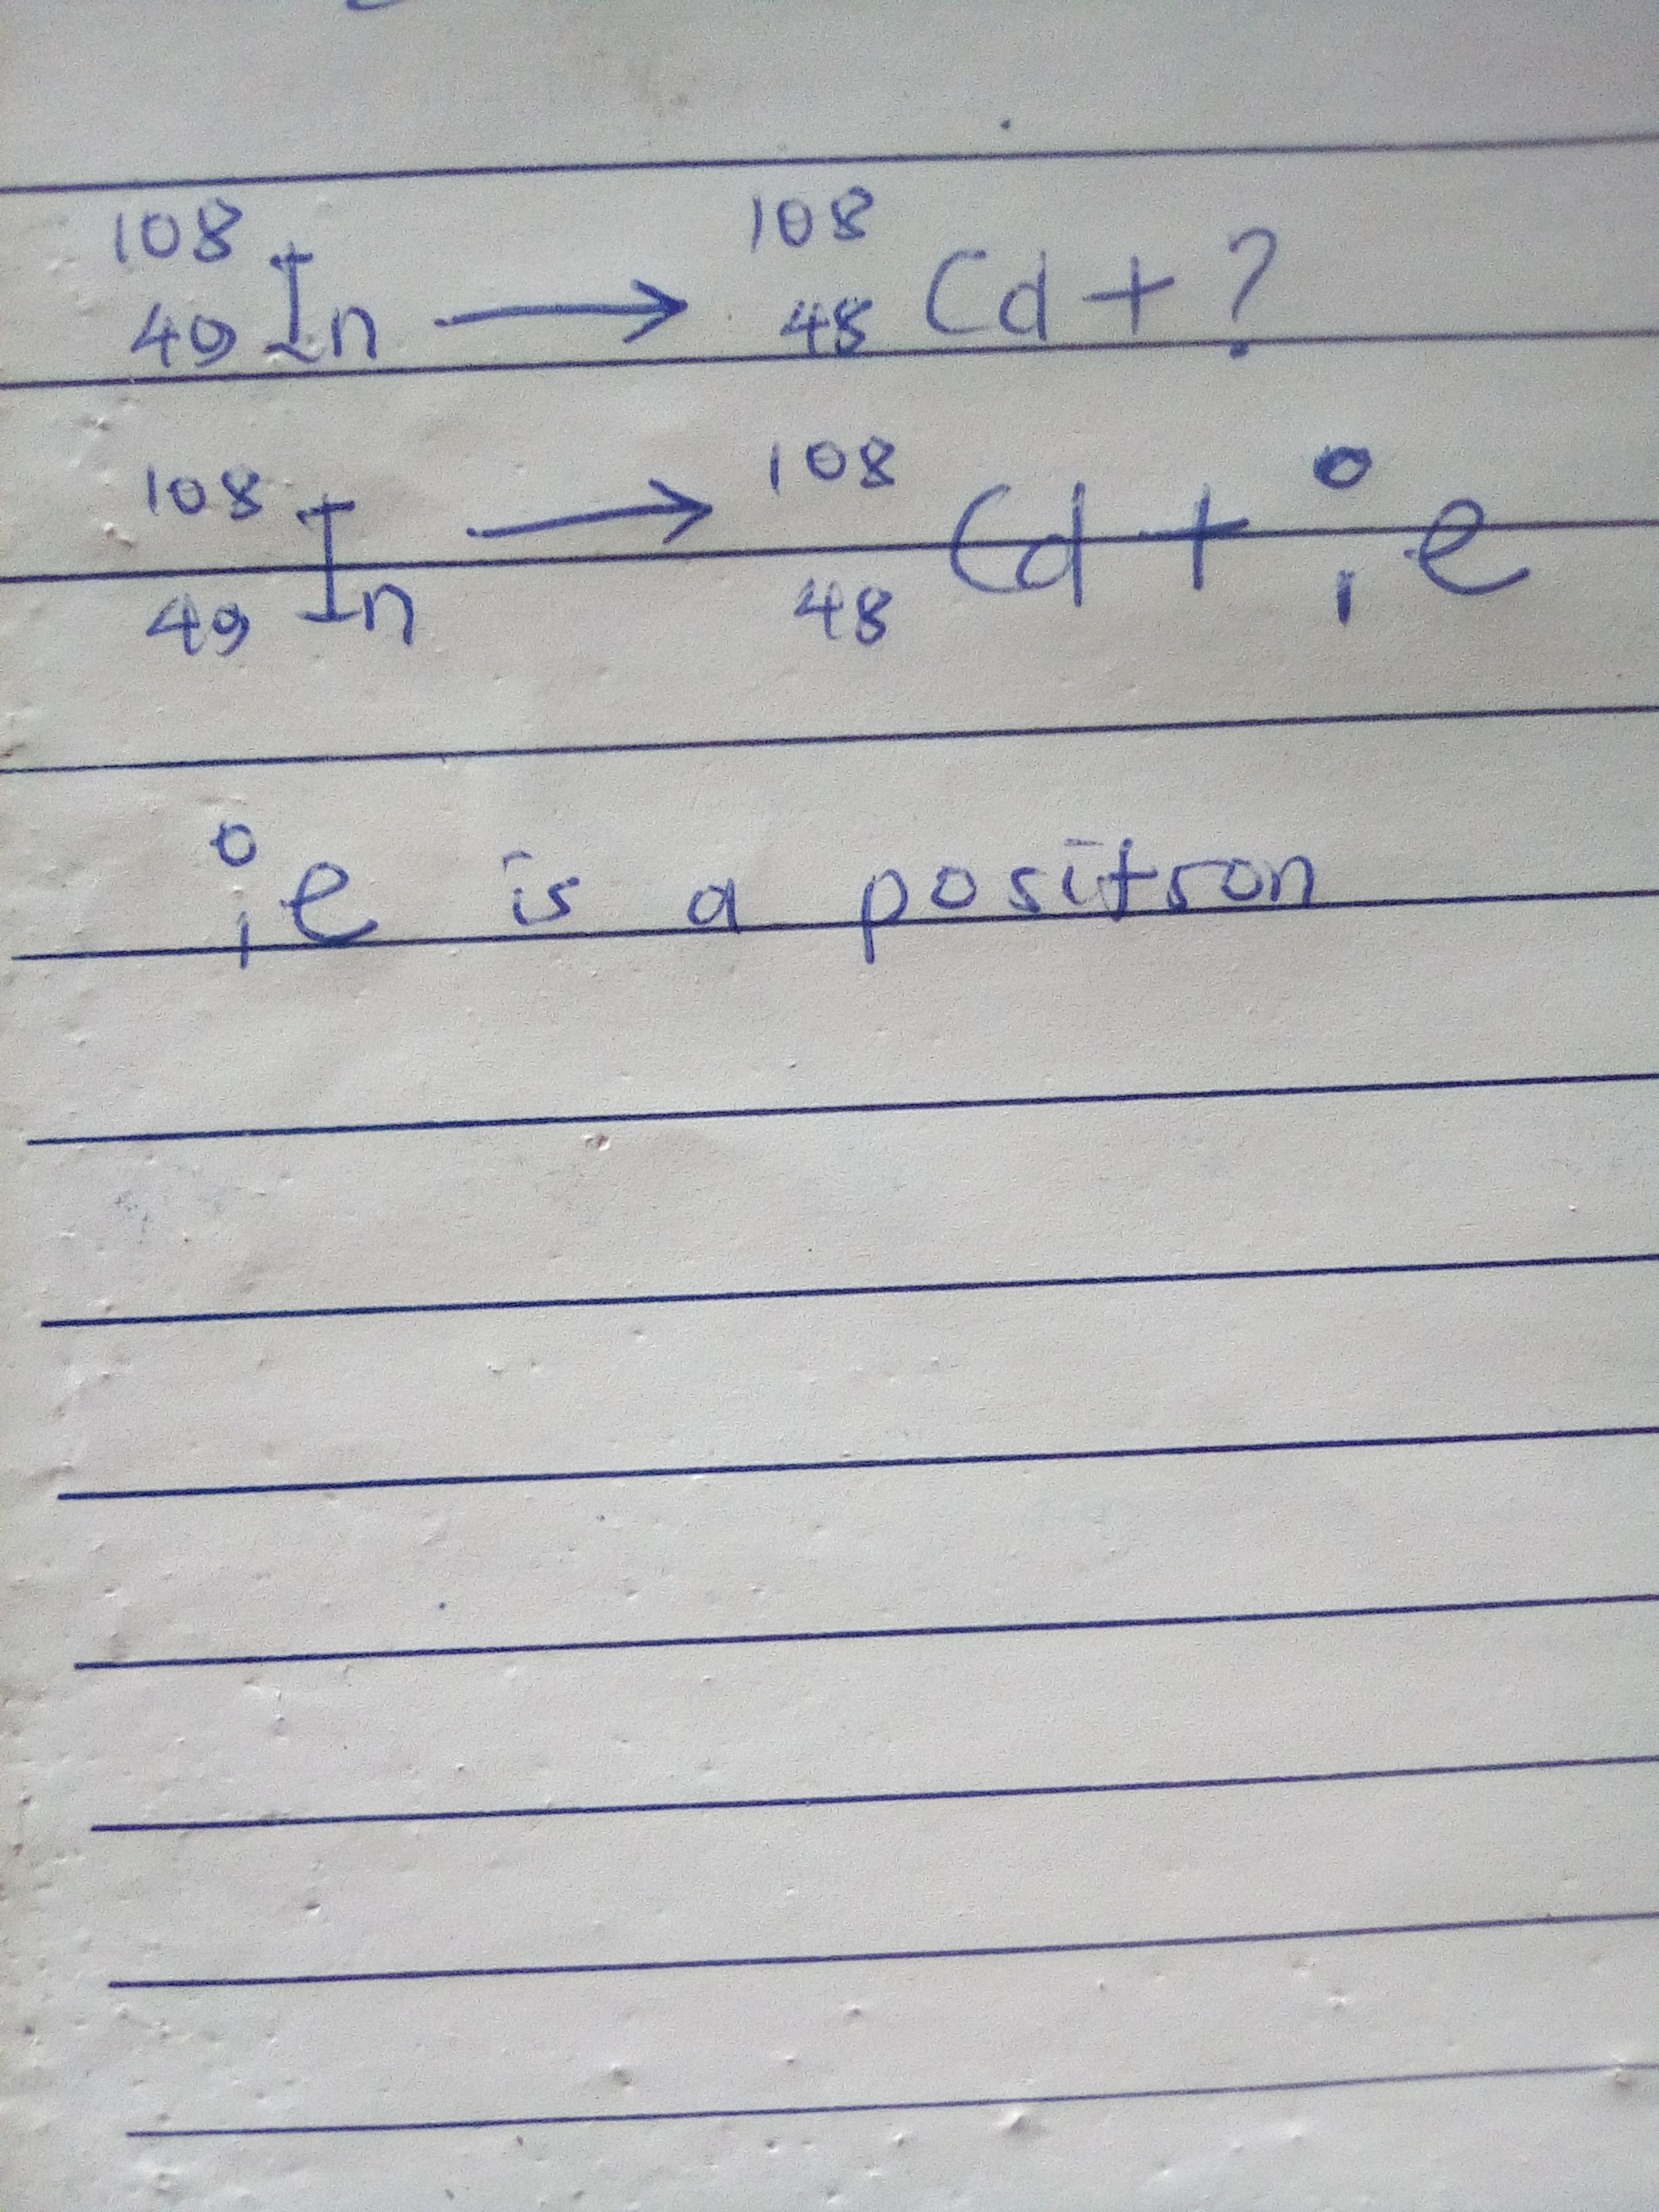 ¹⁰⁸₄₉In → ¹⁰⁸₄₈Cd + ?
¹⁰⁸₄₉In → ¹⁰⁸₄₈Cd + ⁰₁e
⁰₁e is a positron